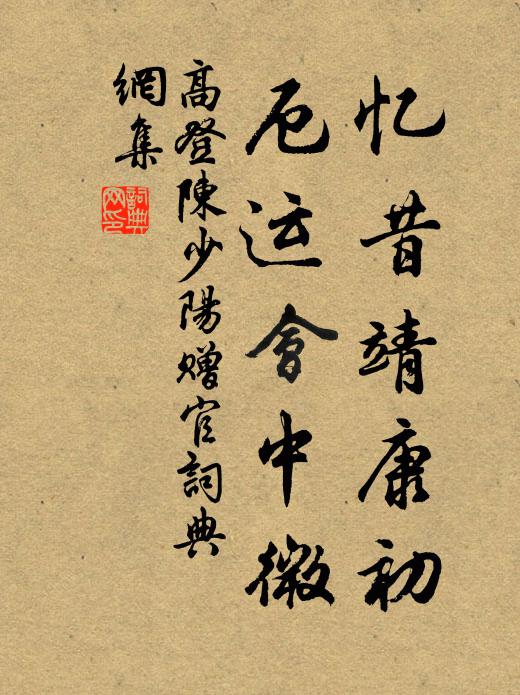 忆昔靖康初
厄运會中微
高登陳少陽贈官詞典
網集
詞典
网印